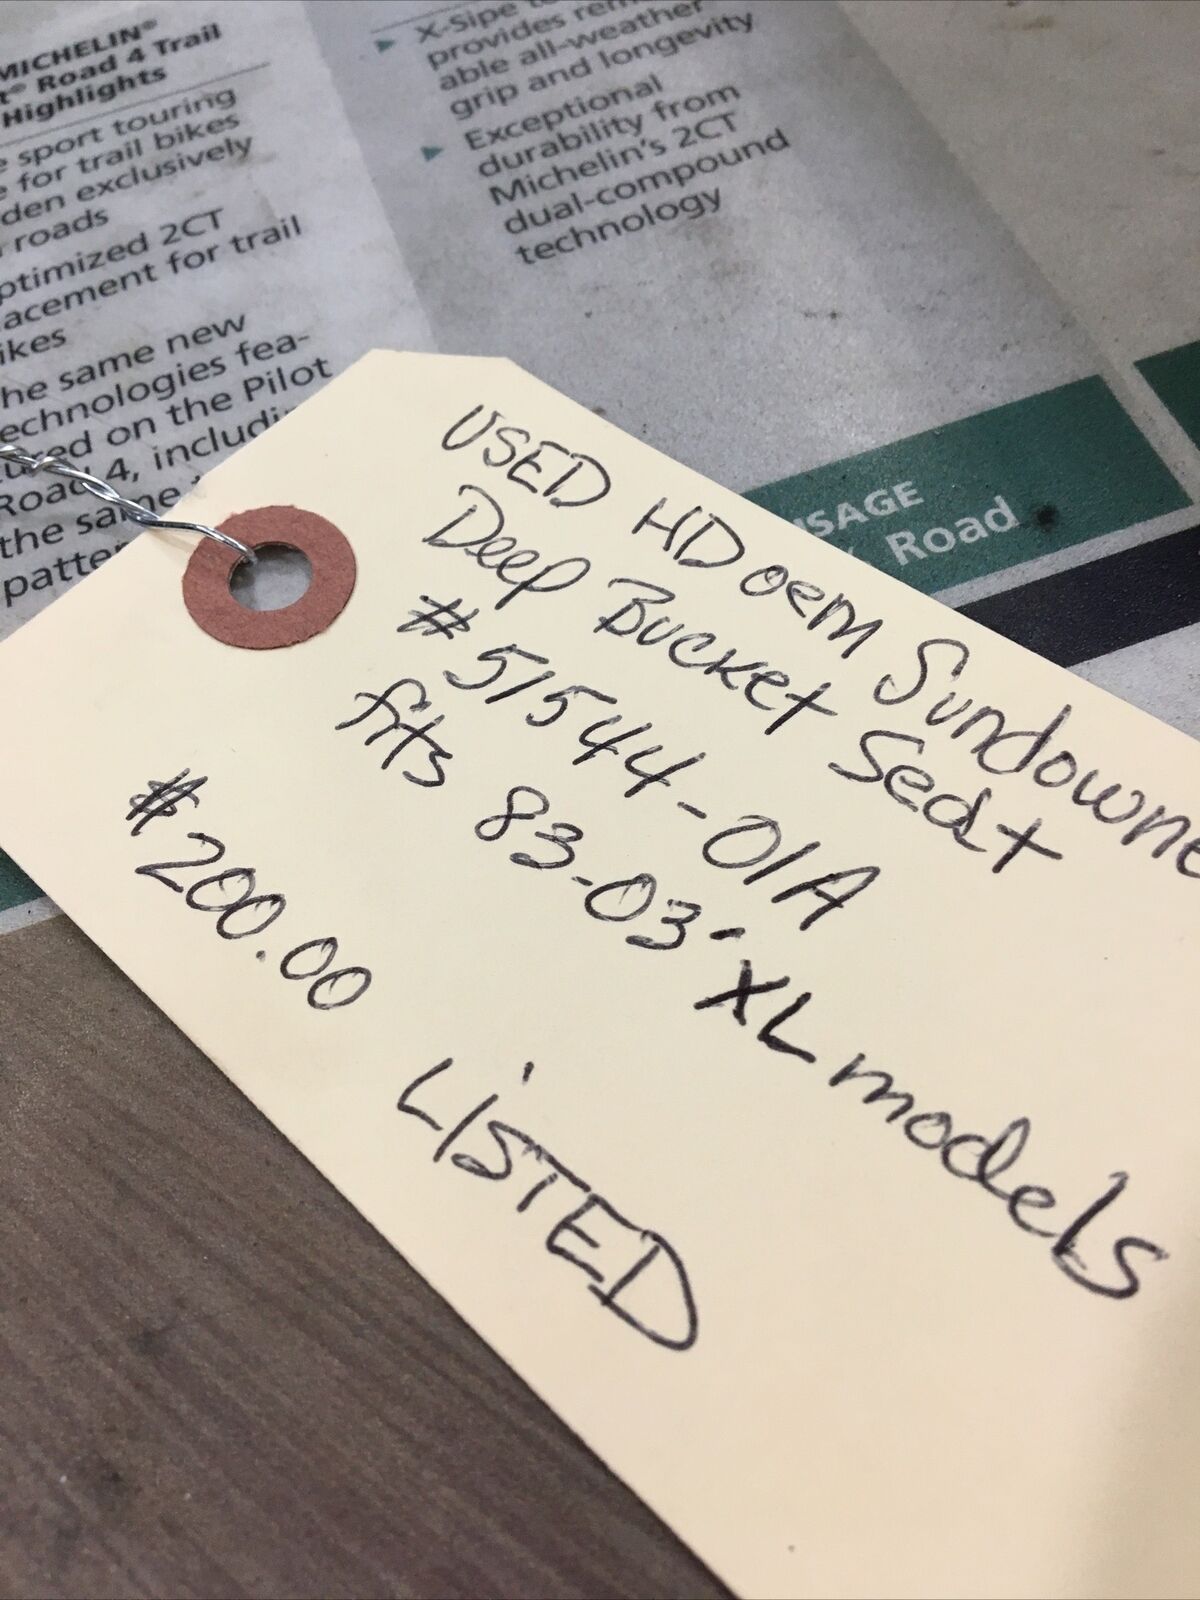 MICHELIN®
t® Road 4 Trail
Highlights
sport touring
for trail bikes
den exclusively
roads
ptimized 2CT
acement for trail
ikes
he same new
echnologies fea-
tured on the Pilot
Road 4, includi
the same
patte
X-Sipe
provides rem
able all-weather
grip and longevity
Exceptional
durability from
Michelin's 2CT
dual-compound
technology
USAGE
Road
USED HD oem Sundowne
Deep Bucket Seat
#51544-01A
fits 83-03 XL models
$200.00
LISTED